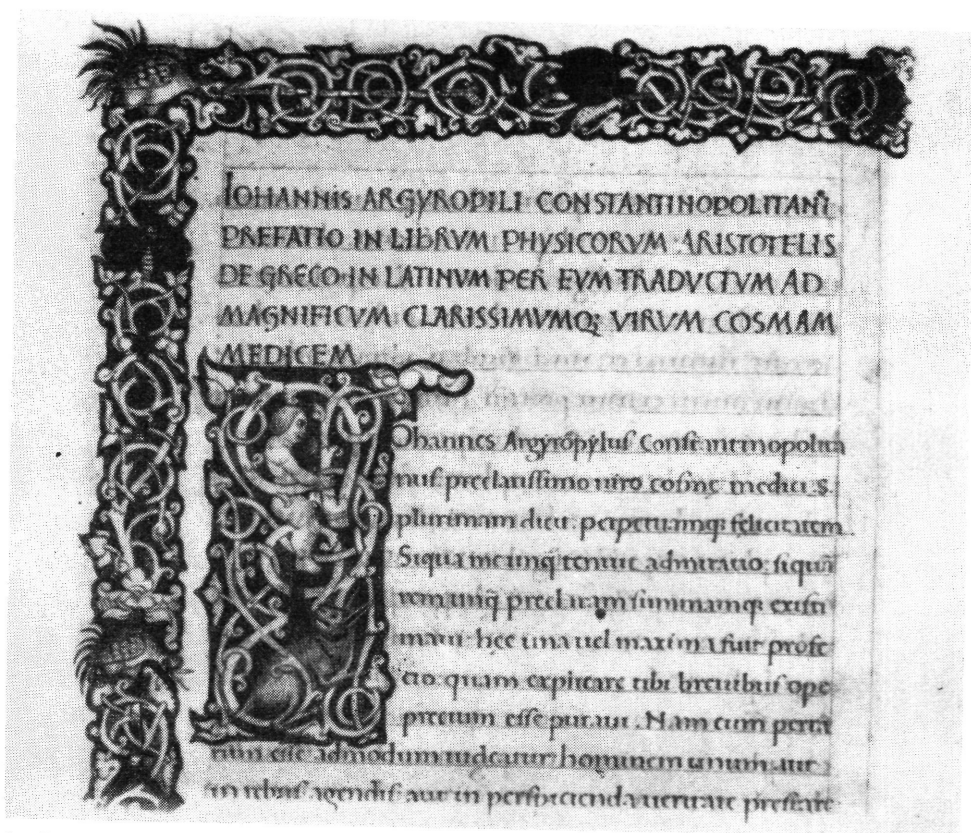 IOHANNIS ARGYROPILI CONSTANTINOPOLITANI
PREFATIO IN LIBRVM PHYSICORVM ARISTOTELIS
DE GRECO IN LATINUM PER EVM TRADVCTVM AD
MAGNIFICVM CLARISSIMVMQ; VIRVM COSMAM
MEDICEM
Iohannes Argyropylus Constantinopolita
nus preclarissimo uiro cosme medici s.
plurimam dicit perpetuamq; felicitatem
Siqua me unq̃ tenuit admiratio: siquã
rem unq̃ preclaram summamq; existi
maui: hec una uel maxima fuit profe
cto. quam explicare tibi breuibus ope
pretium esse putaui. Nam cum
esse admodum uideatur hominem unum aut
in rebus agendis aut in perspicienda ueritate prestare